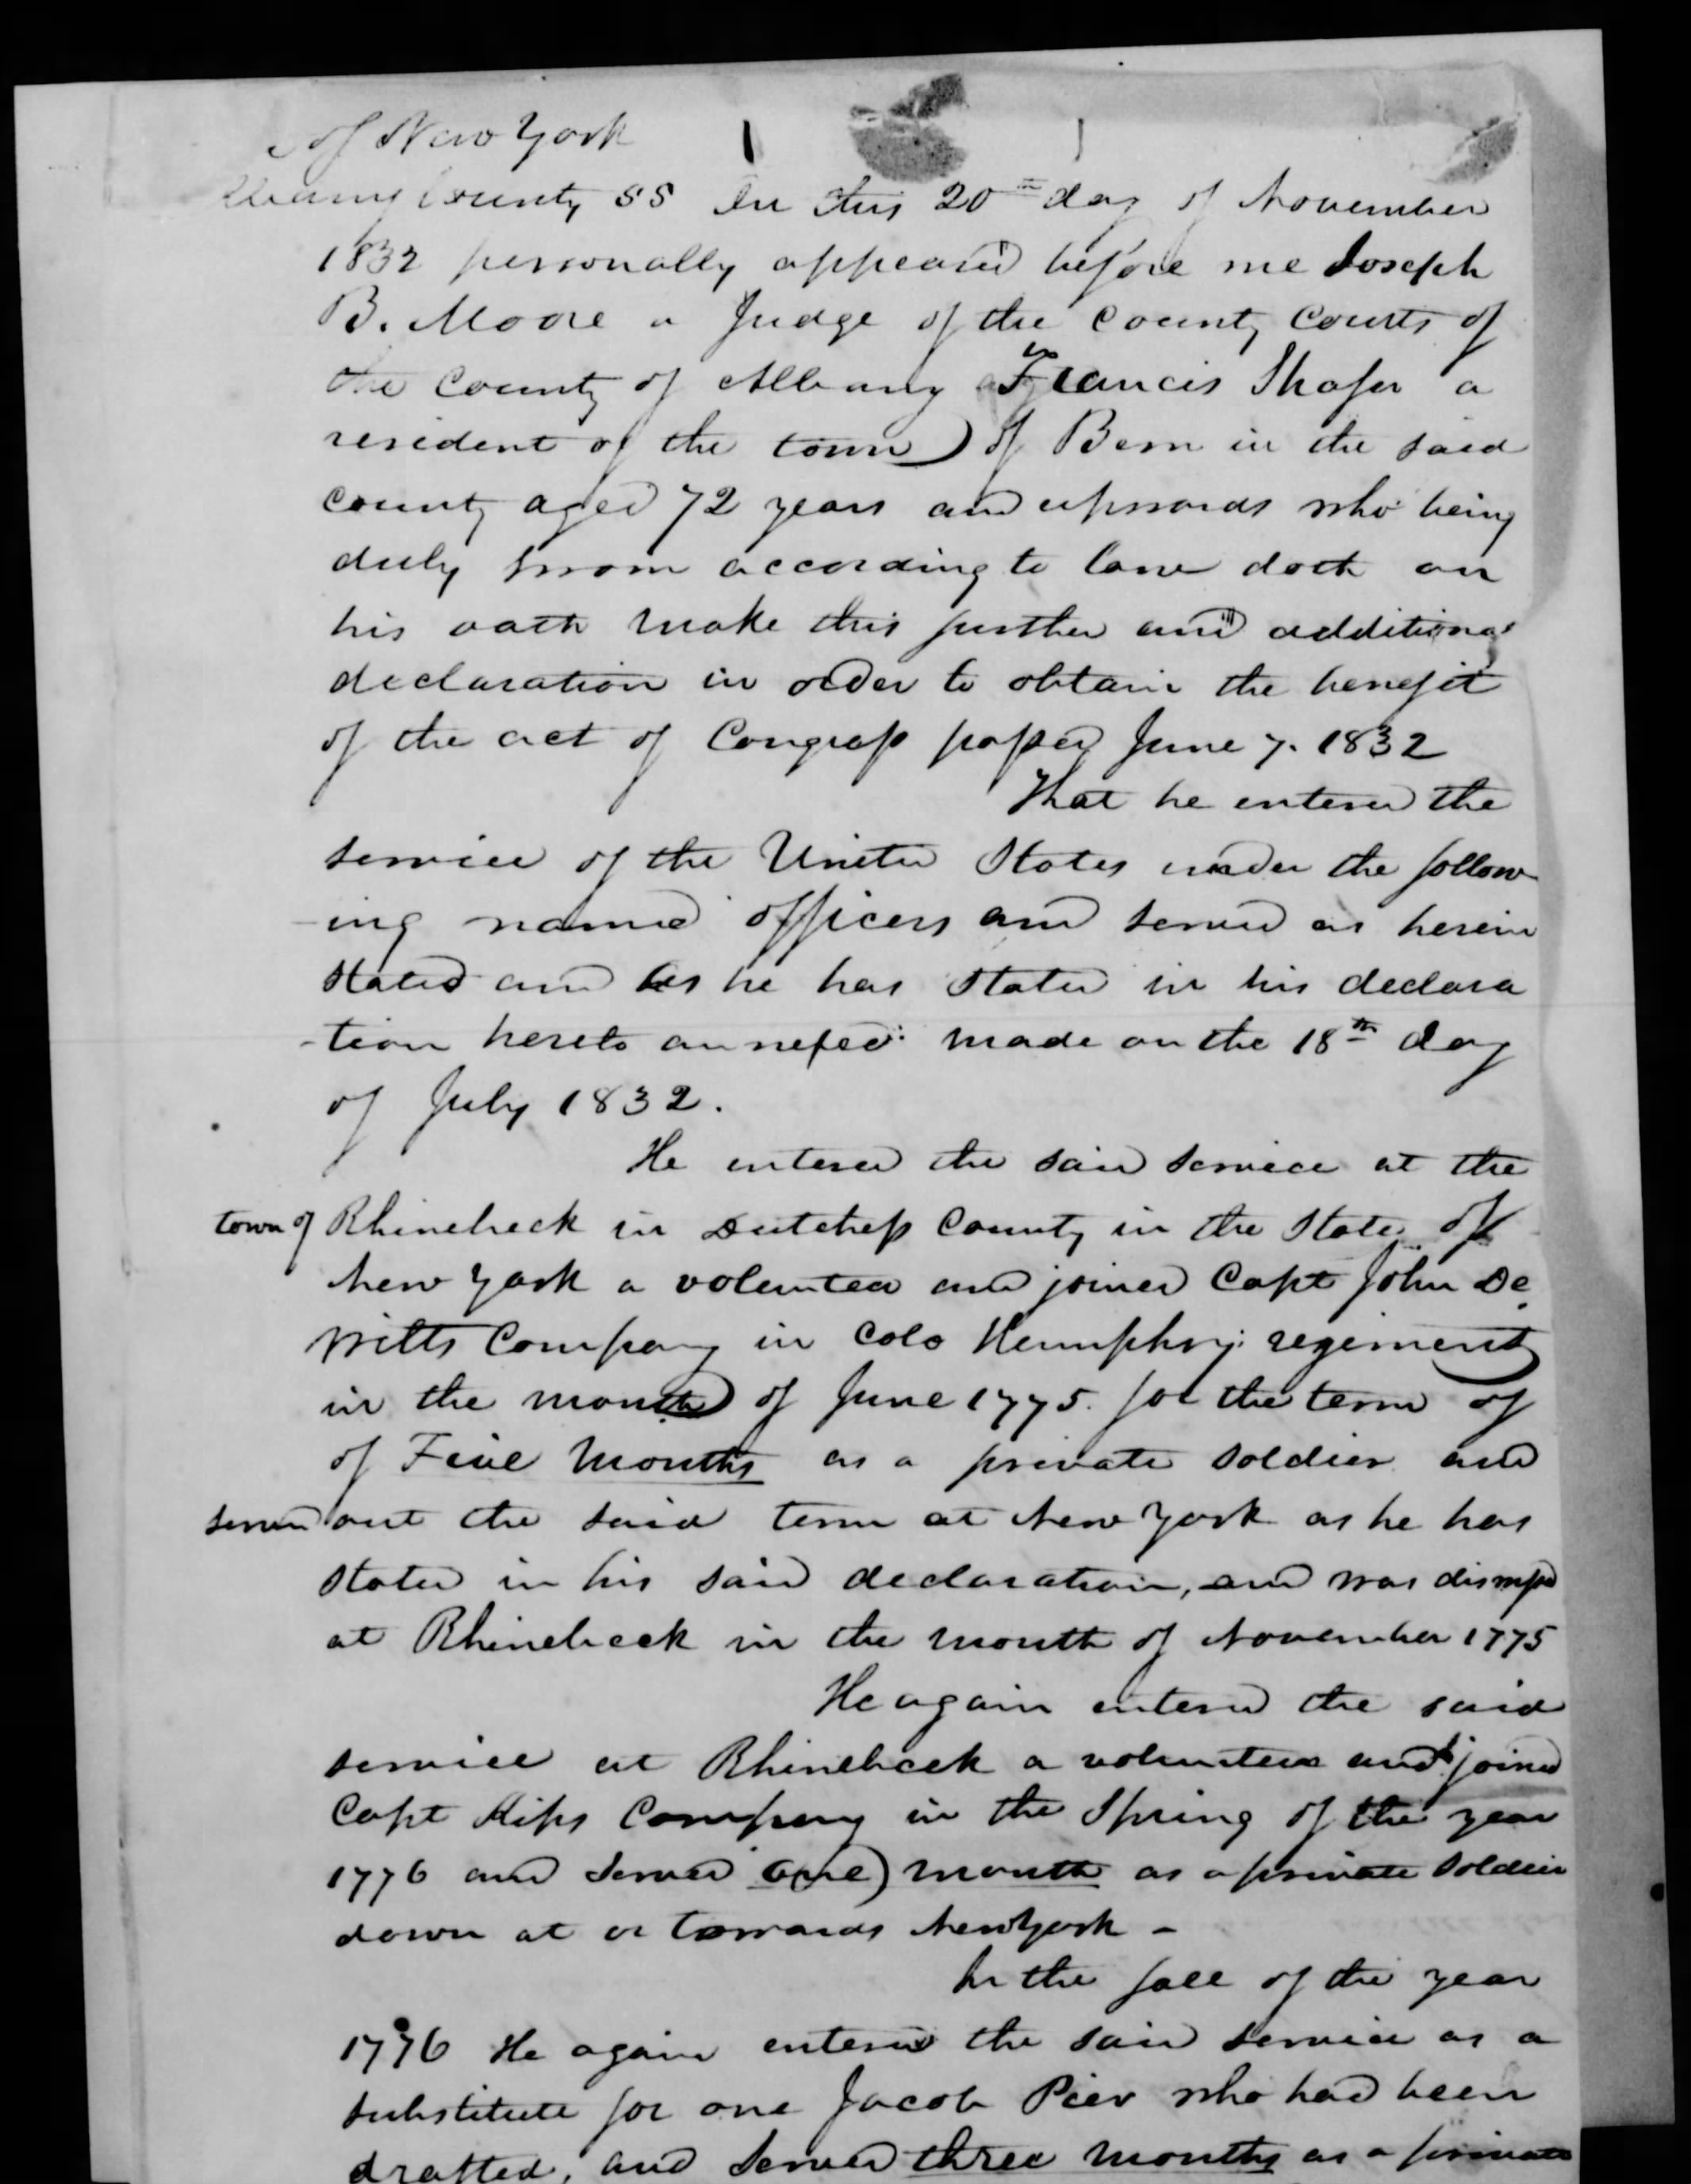 of New York
Albany County SS On this 20th day of November
1832 personally appeared before me Joseph
B. Moore a Judge of the County Courts of
the County of Albany Francis Shafer a
resident of the town of Bern in the said
county aged 72 years and upwards who being
duly sworn according to law doth on
his oath make this further and additional
declaration in order to obtain the benefit
of the act of Congress passed June 7. 1832
That he entered the
service of the United States under the follow
-ing named officers and served as herein
stated and as he has stated in his declara
-tion hereto annexed made on the 18th day
of July 1832.
He entered the said service at the
town of Rhinebeck in Dutchess County in the State of
New York a volunteer and joined Capt John De
Witts Company in Colo Humphreys regiment
in the month of June 1775. for the term of
of Five Months as a private soldier and
served out the said term at New York as he has
stated in his said declaration, and was dismissed
at Rhinebeck in the month of November 1775
He again entered the said
service at Rhinebeck a volunteer and joined
Capt Kips Company in the Spring of the year
1776 and served one month as a private soldier
down at or towards New York -
In the fall of the year
1776 He again entered the said service as a
substitute for one Jacob Pier who had been
drafted, and served three months as a private